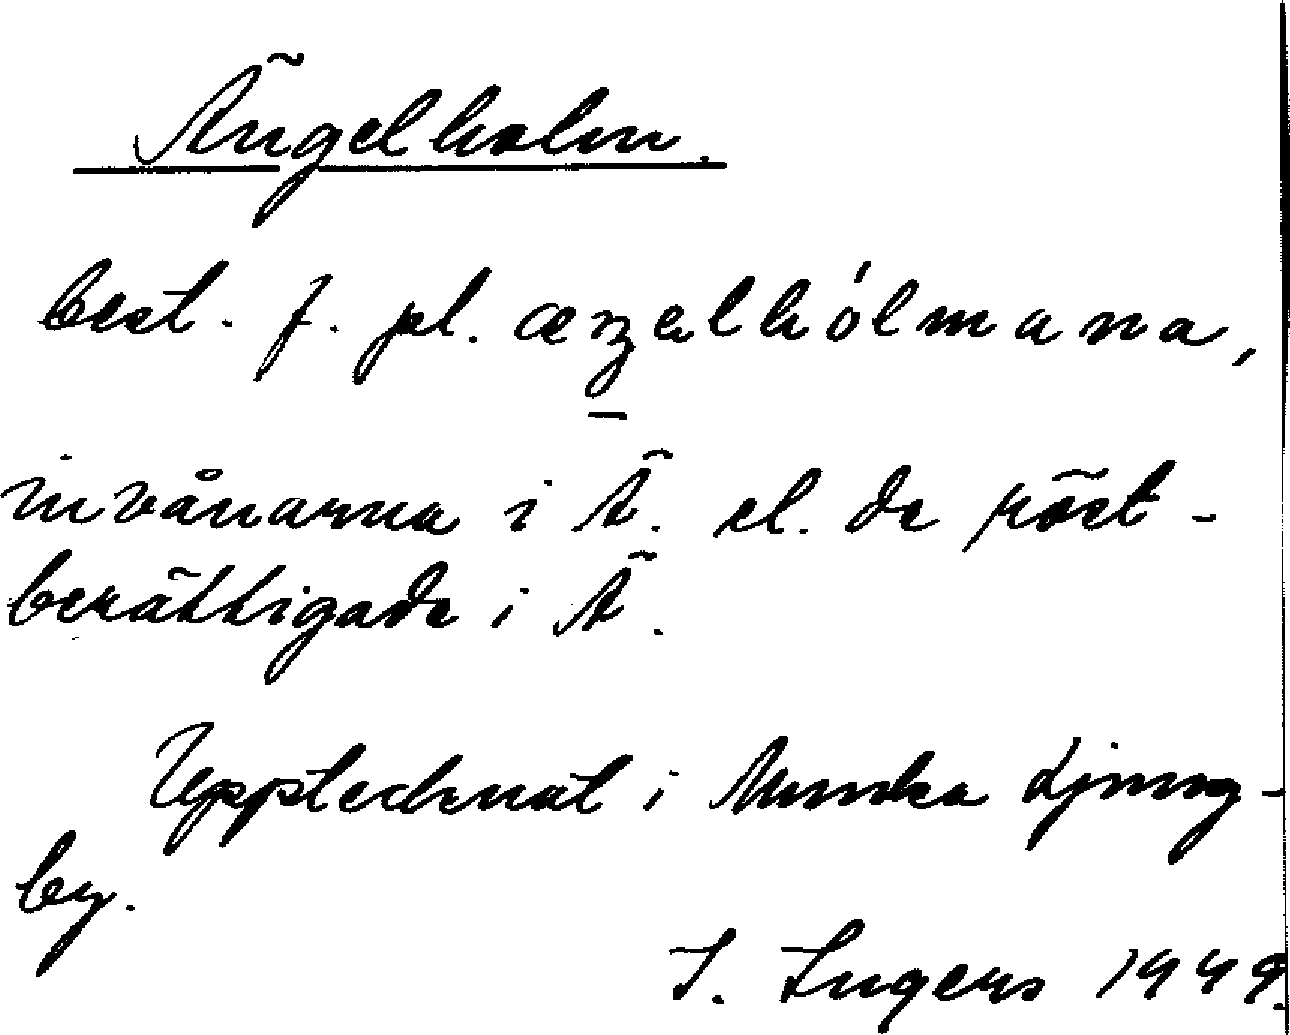 Ängelholm.
best. f. pl. æŋəlhólmana,
invånarna i Ä. el. de röst-
berättigade i Ä.
Upptecknat i Munka Ljung-
by.
I. Ingers 1949.